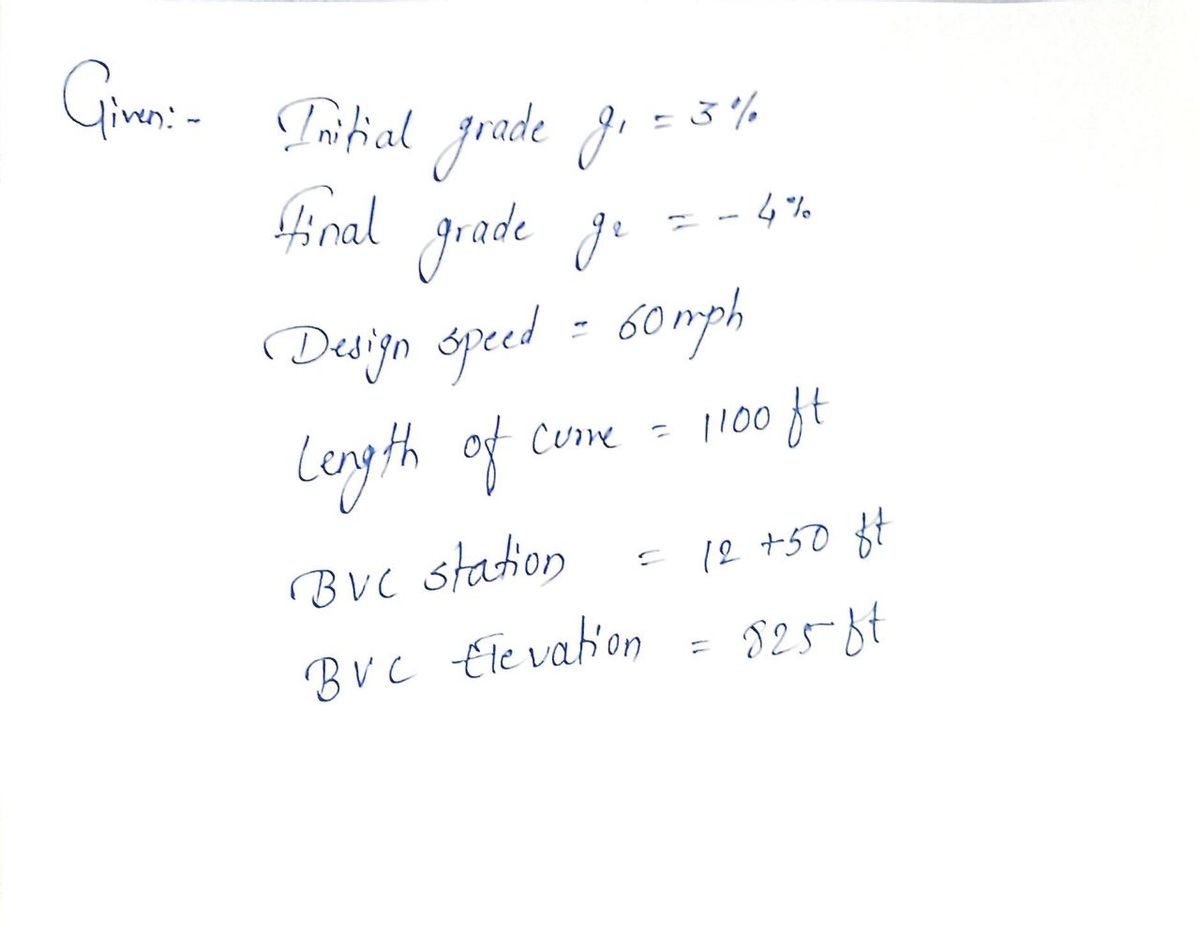 Given:- Initial grade g1 = 3%
Final grade g2 = - 4%
Design speed = 60 mph
Length of curve = 1100 ft
BVC station = 12 +50 ft
BVC Elevation = 825 ft